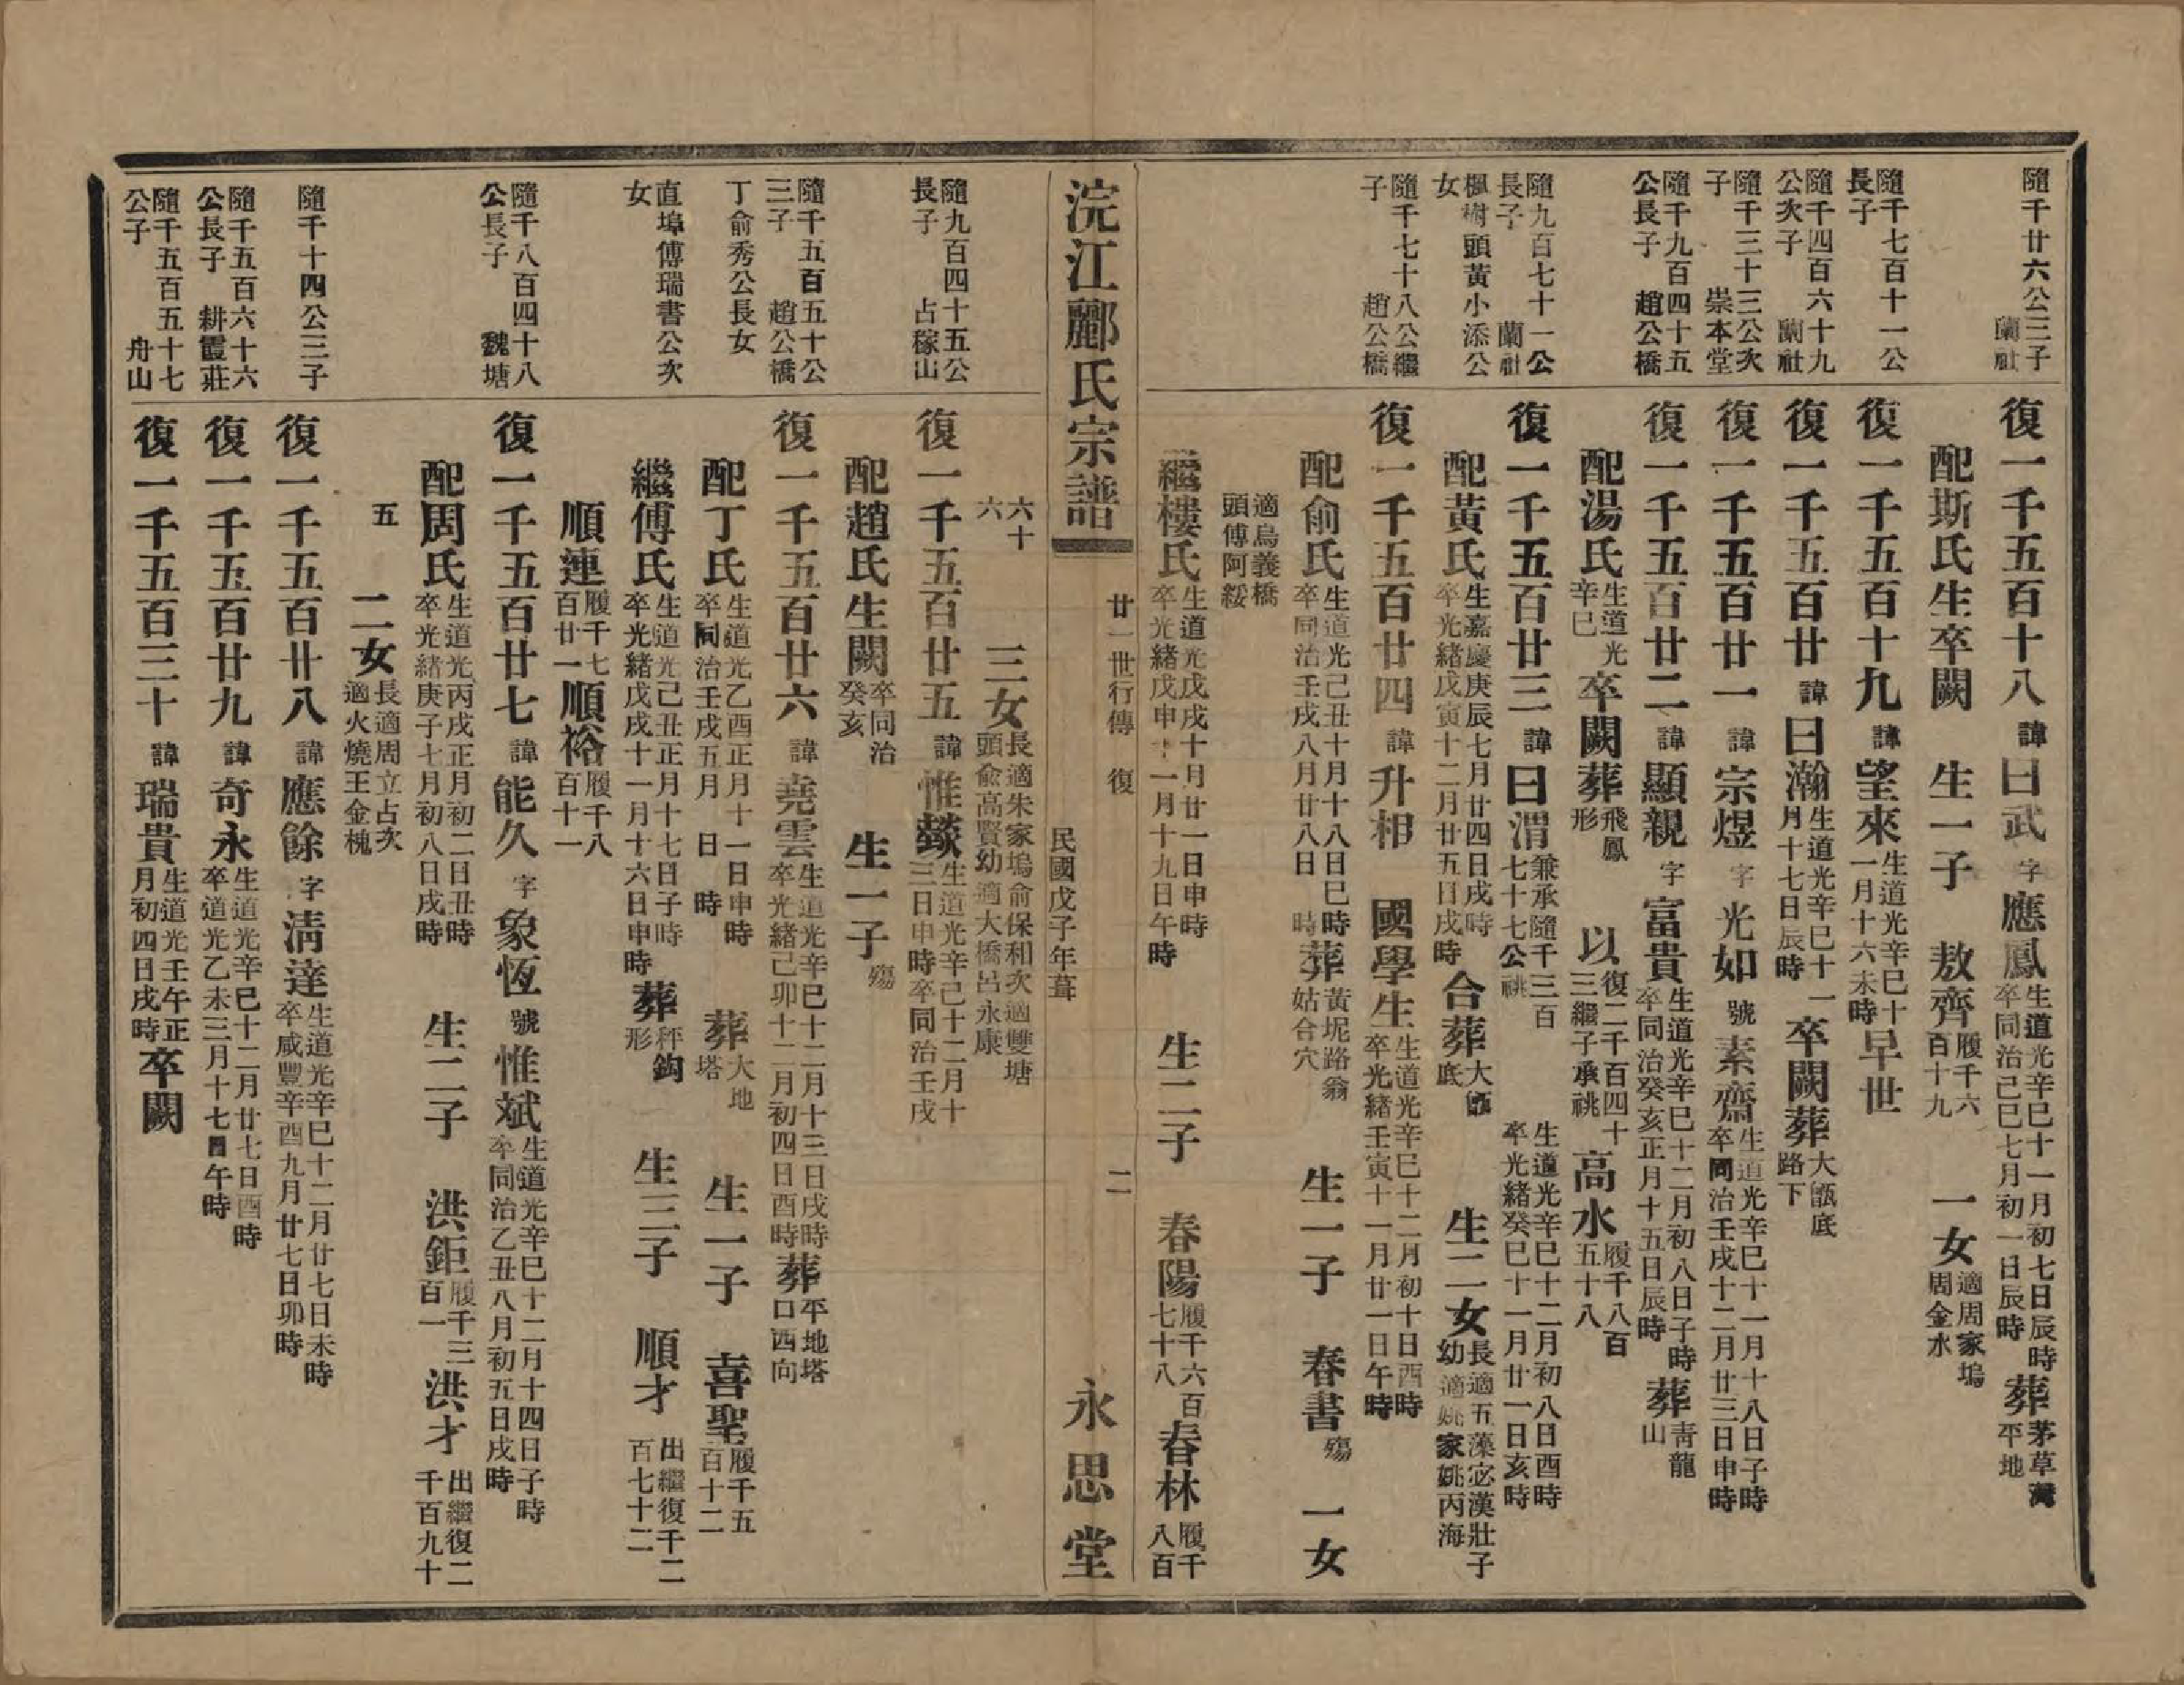 隨千廿六公三子 蘭社
復一千五百十八 諱曰武 字應鳳 生道光辛巳十一月初七日辰時 卒同治己巳七月初一日辰時 葬茅草灣平地
配斯氏生卒闕 生一子 敖齊 履千六百十九 一女 適周家塢周金水
隨千七百十一公長子
復一千五百十九 諱望來 生道光辛巳十一月十六未時 早世
隨千四百六十九公次子 蘭社
復一千五百廿 諱曰瀚 生道光辛巳十一月十七日辰時 卒闕葬大甑底路下
隨千三十三公次子 崇本堂
復一千五百廿一 諱宗煜 字光如 號素齋 生道光辛巳十一月十八日子時 卒同治壬戌十二月廿三日申時
隨千九百四十五公長子 趙公橋
復一千五百廿二 諱顯親 字富貴 生道光辛巳十二月初八日子時 卒同治癸亥正月十五日辰時 葬青龍山
配湯氏 生道光辛巳 卒闕葬飛鳳形 以復二千百四十三繼子承祧 高水 履千八百五十八
隨九百七十一公長子 蘭社
復一千五百廿三 諱曰渭 兼承隨千三百七十七公祧 生道光辛巳十二月初八日酉時 卒光緒癸巳十一月廿一日亥時
楓樹頭黃小添公女
配黃氏 生嘉慶庚辰七月廿四日戌時 卒光緒戊寅十二月廿五日戌時 合葬大甑底 生二女 長適五藻宓漢壯子 幼適姚家姚丙海
隨千七十八公繼子 趙公橋
復一千五百廿四 諱升相 國學生 生道光辛巳十二月初十日酉時 卒光緒壬寅十一月廿一日午時
配俞氏 生道光己丑十月十八日巳時 卒同治壬戌八月廿八日 時 葬黃坭路翁姑合穴 生一子 春書 殤 一女
適烏義橋頭傅阿綏
繼樓氏 生道光戊戌十月廿一日申時 卒光緒戊申十一月十九日午時 生二子 春陽 履千六百七十八 春林 履千八百
浣江酈氏宗譜 廿一世行傳 復 二 民國戊子年葺 永思堂
六十六 三女 長適朱家塢俞保和次適雙塘頭俞高賢幼適大橋呂永康
隨九百四十五公長子 占稼山
復一千五百廿五 諱惟燚 生道光辛巳十二月十三日申時卒同治壬戌
配趙氏生闕 卒同治癸亥 生一子 殤
隨千五百五十公三子 趙公橋
復一千五百廿六 諱堯雲 生道光辛巳十二月十三日戌時 卒光緒己卯十二月初四日酉時 葬平地塔口西向
丁俞秀公長女
配丁氏 生道光乙酉正月十一日申時 卒同治壬戌五月 日 時 葬大地塔 生一子 喜聖 履千五百十二
直埠傅瑞書公次女
繼傅氏 生道光己丑正月十七日子時 卒光緒戊戌十一月十六日申時 葬秤鈎形 生三子 順才 出繼復千二百七十二
順連 履千七百廿一 順裕 履千八百十一
隨千八百四十八公長子 魏塘
復一千五百廿七 諱能久 字象恆 號惟斌 生道光辛巳十二月十四日子時 卒同治乙丑八月初五日戌時
配周氏 生道光丙戌正月初二日丑時 卒光緒庚子七月初八日戌時 生二子 洪鉅 履千三百一 洪才 出繼復二千百九十
五 二女 長適周立占次適火燒王金槐
隨千十四公三子
復一千五百廿八 諱應餘 字淸達 生道光辛巳十二月廿七日未時 卒咸豐辛酉九月廿七日卯時
隨千五百六十六公長子 耕霞莊
復一千五百廿九 諱奇永 生道光辛巳十二月廿七日酉時 卒道光乙未三月十七日午時
隨千五百五十七公子 舟山
復一千五百三十 諱瑞貴 生道光壬午正月初四日戌時 卒闕